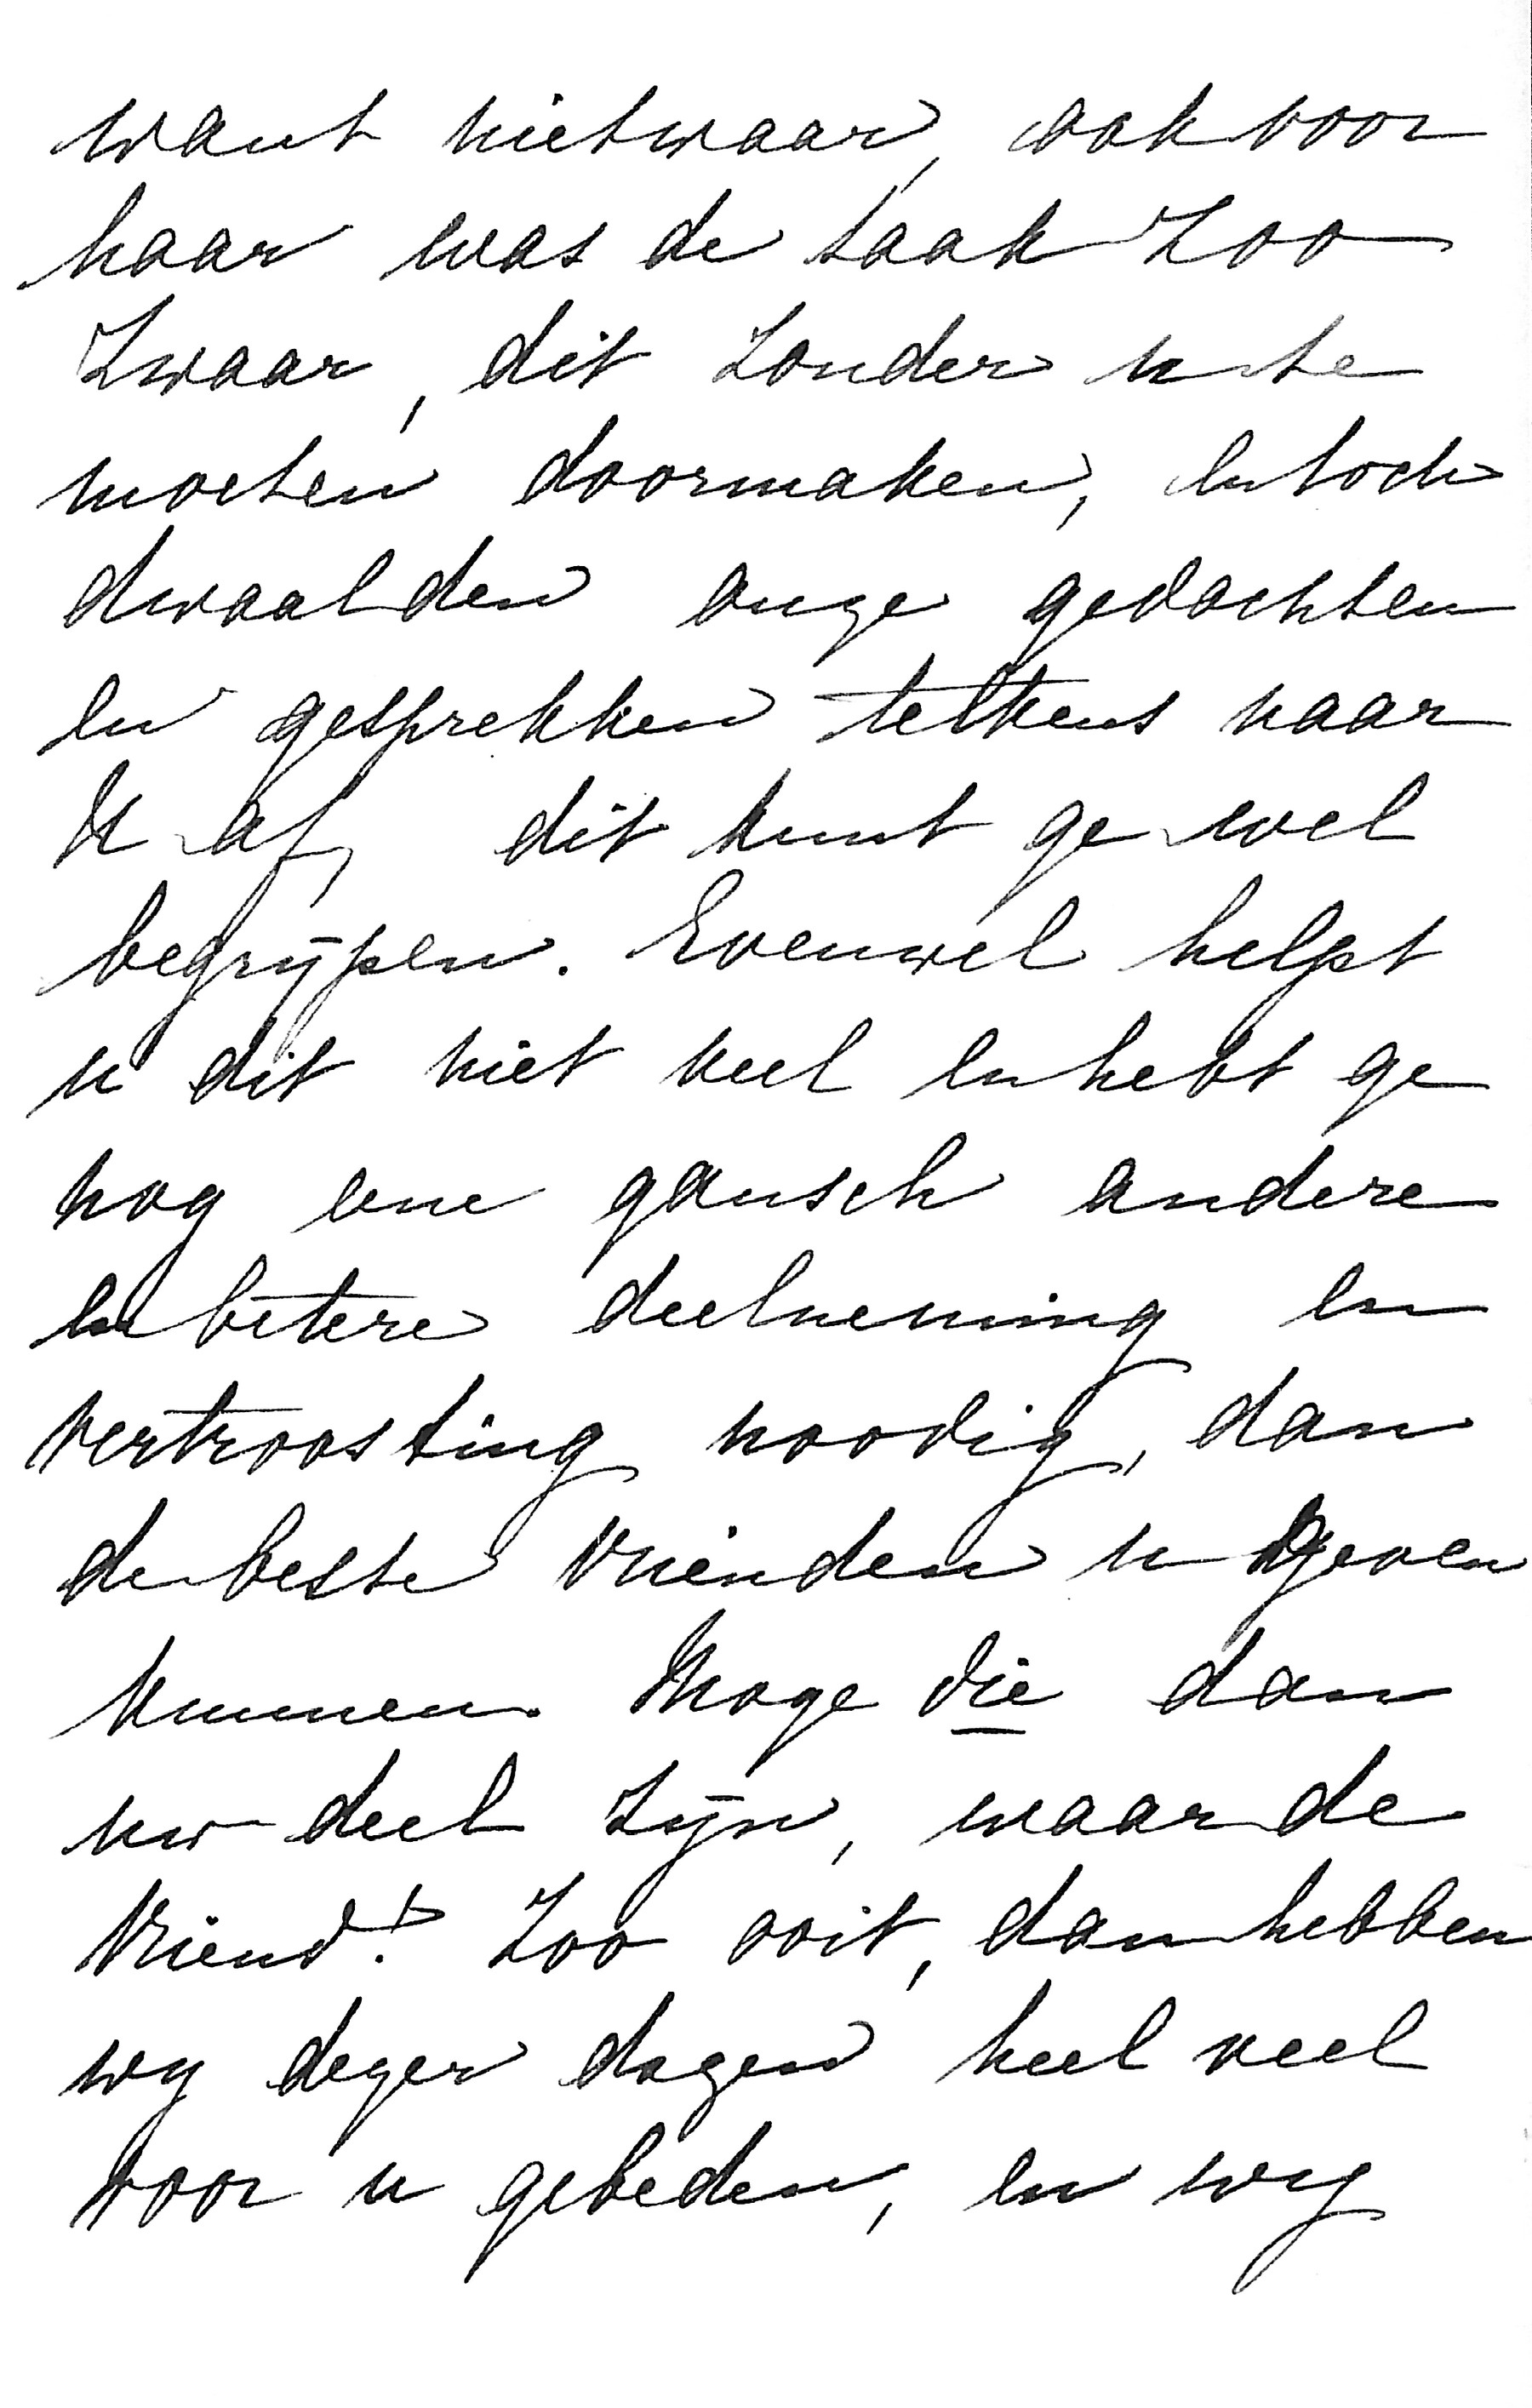 want nietwaar, ook voor
haar was de taak zoo
zwaar, dit zonder u te
moeten doormaken, en toch
dwaalden onze gedachten
en gesprekken telkens naar
U af, dit kunt ge wel
begrijpen. Evenwel helpt
u dit niet veel en hebt ge
nog eene gansch andere
en betere deelneming en
vertroosting noodig, dan
de beste vrienden u geven
kunnen. Moge die dan
uw deel zijn, waarde
Vriend! Zoo ooit, dan hebben
wij dezer dagen heel veel
voor u gebeden, en wij